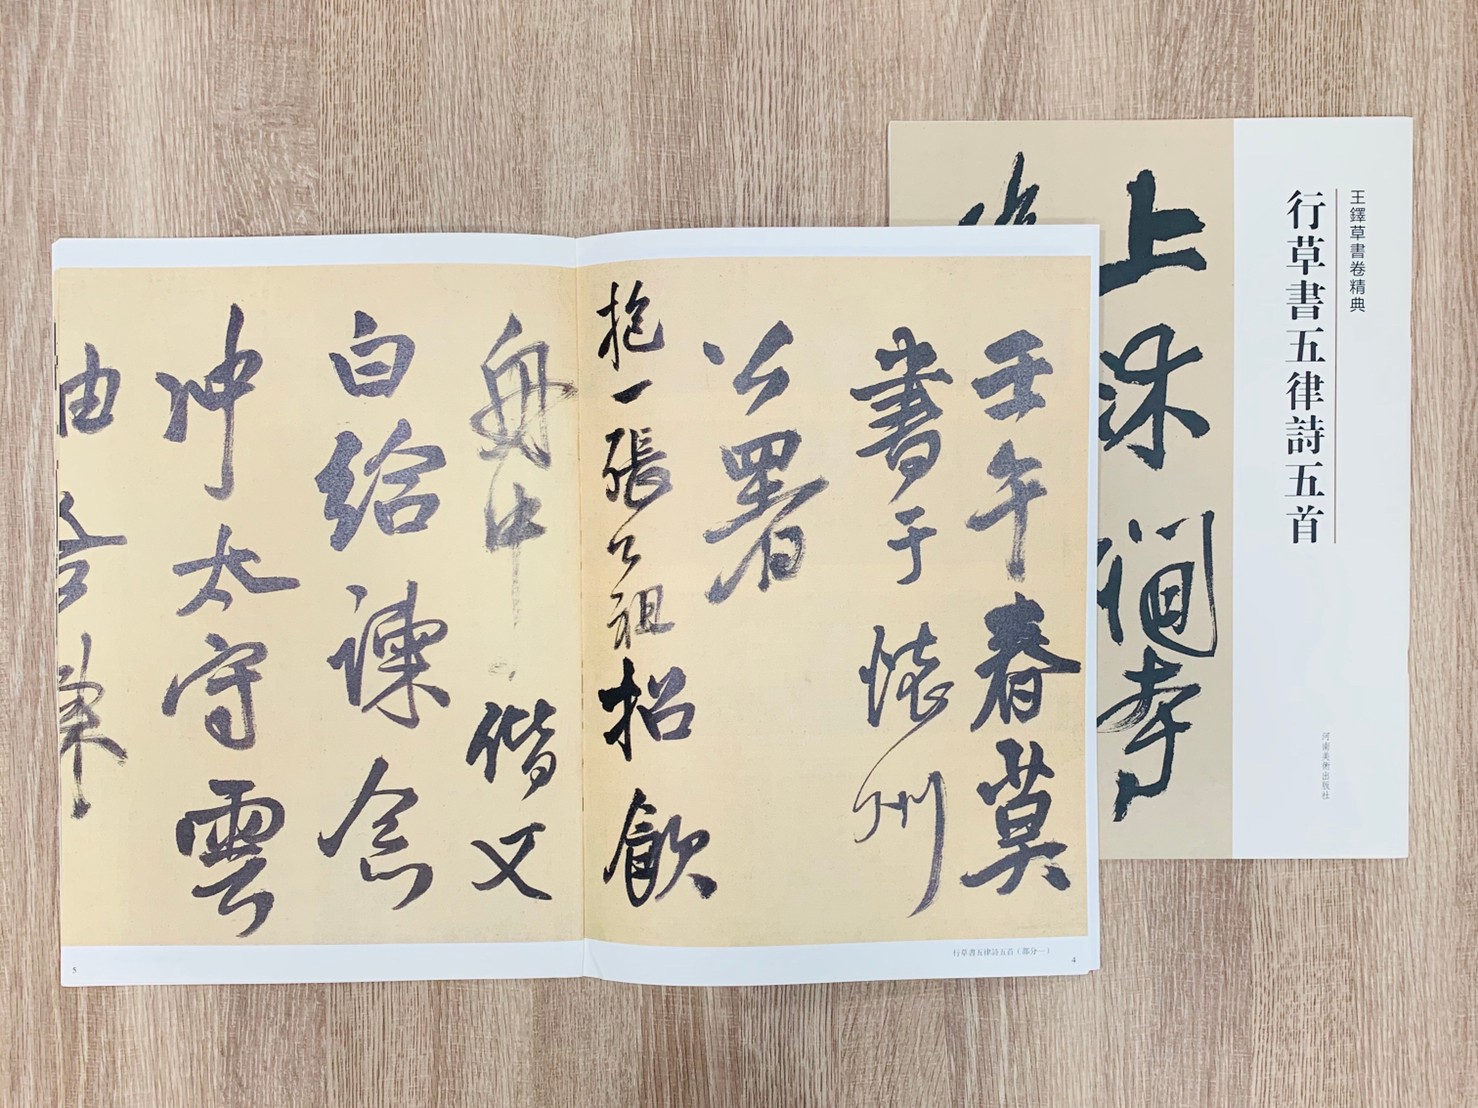 王鐸草書卷精典
行草書五律詩五首
河南美術出版社
上沐
壬午春莫
書于懷州
公署
抱一張公祖招飲
舟中偕又
白給諫念
冲太守雲
行草書五律詩五首（部分一）
4
5